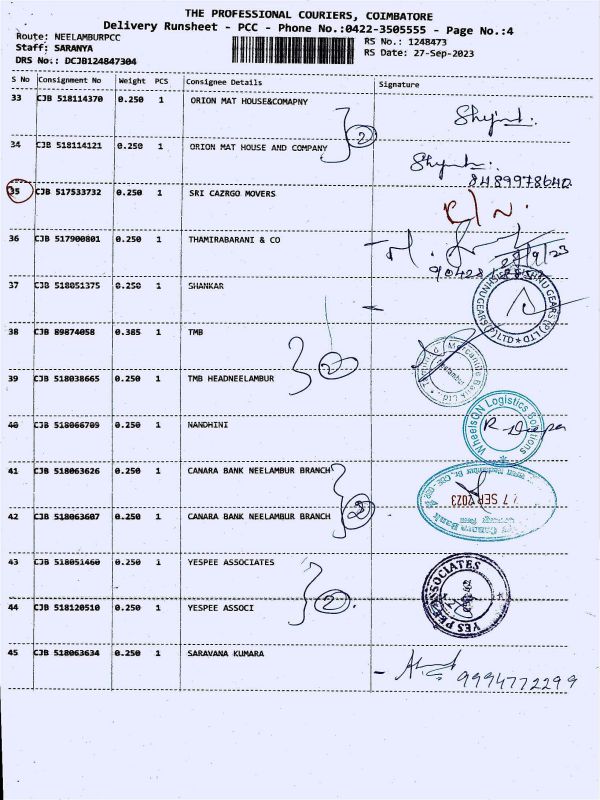 THE PROFESSIONAL COURIERS, COIMBATORE
Delivery Runsheet - PCC - Phone No.:0422-3505555 - Page No.:4
Route: NEELAMBURPCC
RS No.: 1248473
Staff: SARANYA
RS Date: 27-Sep-2023
DRS No.: DCJB124847304
S No Consignment No Weight PCS Consignee Details Signature
33 CJB 518114370 0.250 1 ORION MAT HOUSE&COMAPNY
2
34 CJB 518114121 0.250 1 ORION MAT HOUSE AND COMPANY
8489978640
35 CJB 517533732 0.250 1 SRI CAZRGO MOVERS
36 CJB 517900801 0.250 1 THAMIRABARANI & CO
37 CJB 518051375 0.250 1 SHANKAR
38 CJB 89874058 0.385 1 TMB
2
39 CJB 518038665 0.250 1 TMB HEADNEELAMBUR
40 CJB 518066709 0.250 1 NANDHINI
WheelsON Logistics Solutions
R. Deepa
41 CJB 518063626 0.250 1 CANARA BANK NEELAMBUR BRANCH
2
Canara Bank
SEP 2023
42 CJB 518063607 0.250 1 CANARA BANK NEELAMBUR BRANCH
43 CJB 518051460 0.250 1 YESPEE ASSOCIATES
YES PEE ASSOCIATES
2
44 CJB 518120510 0.250 1 YESPEE ASSOCI
45 CJB 518063634 0.250 1 SARAVANA KUMARA
9994772299